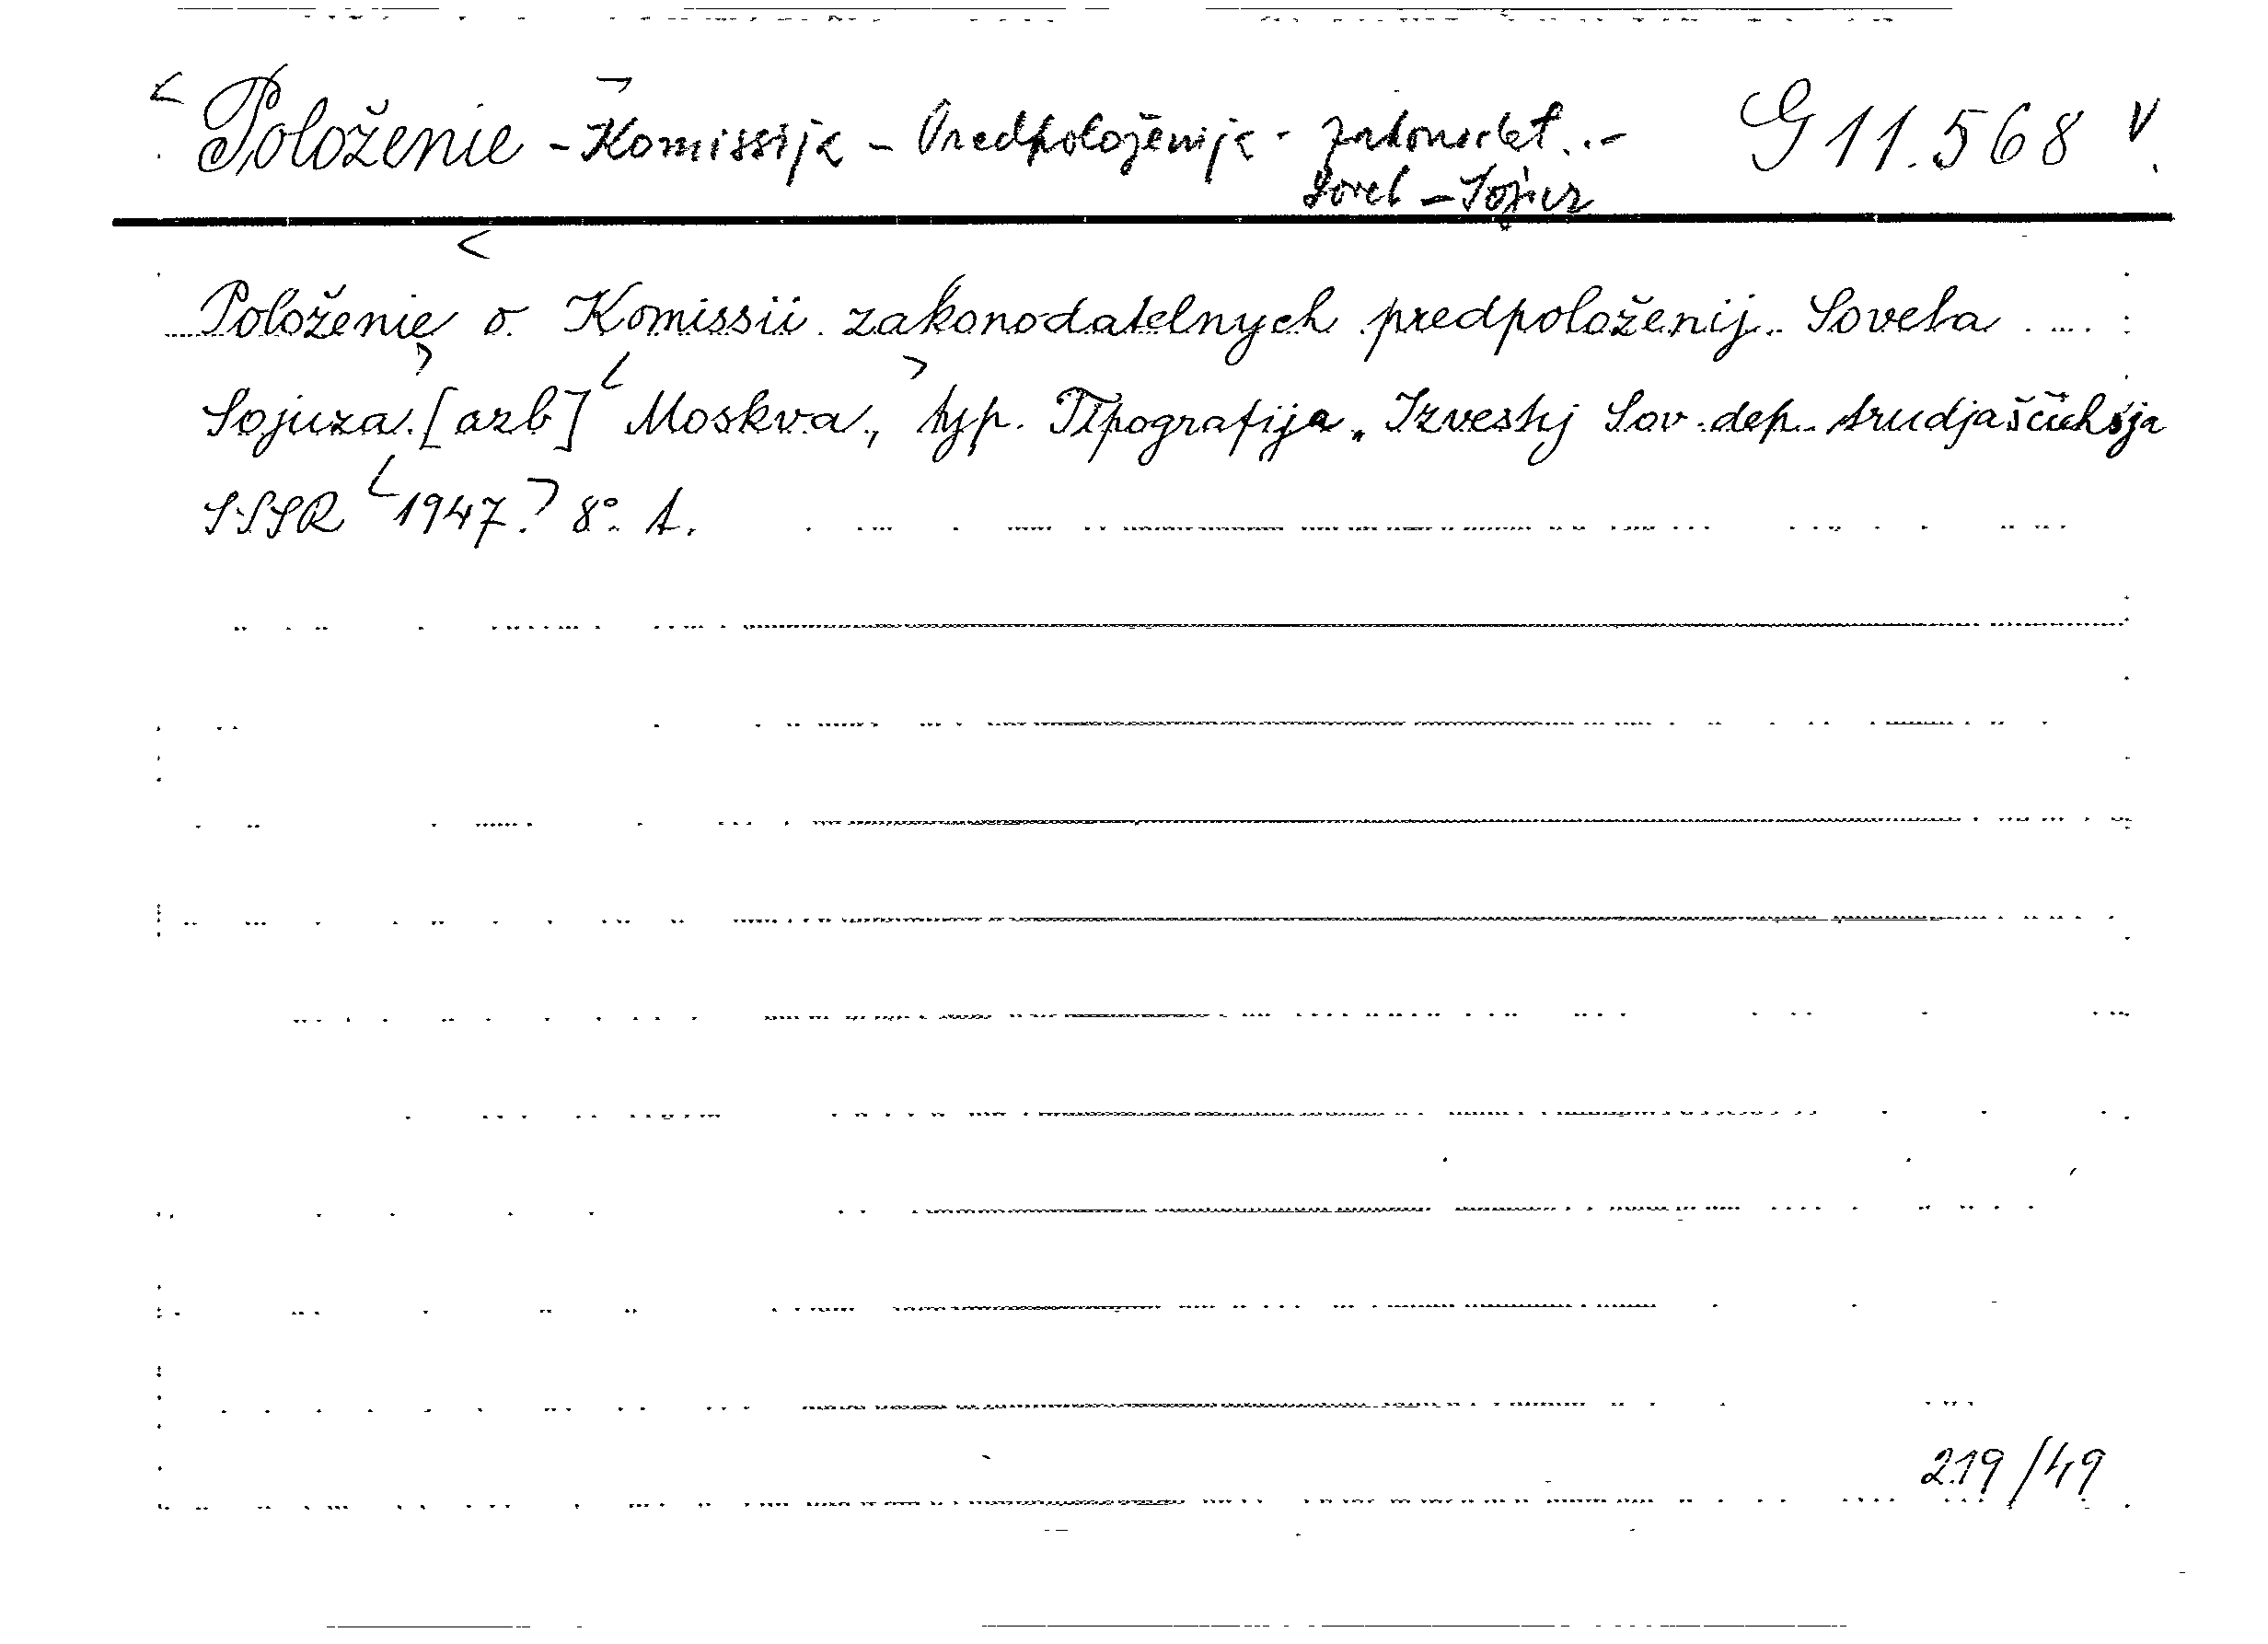 Položenie - Komissija - Predpoloženija - zakonodat. - G 11.568 V
Sovet - Sojuz
Položenie o Komissii zakonodatelnych predpoloženij Soveta
Sojuza. [azb] Moskva, typ. Tipografija „Izvestij Sov. dep. trudjaščichsja
SSSR 1947. 8° 1.
219/49